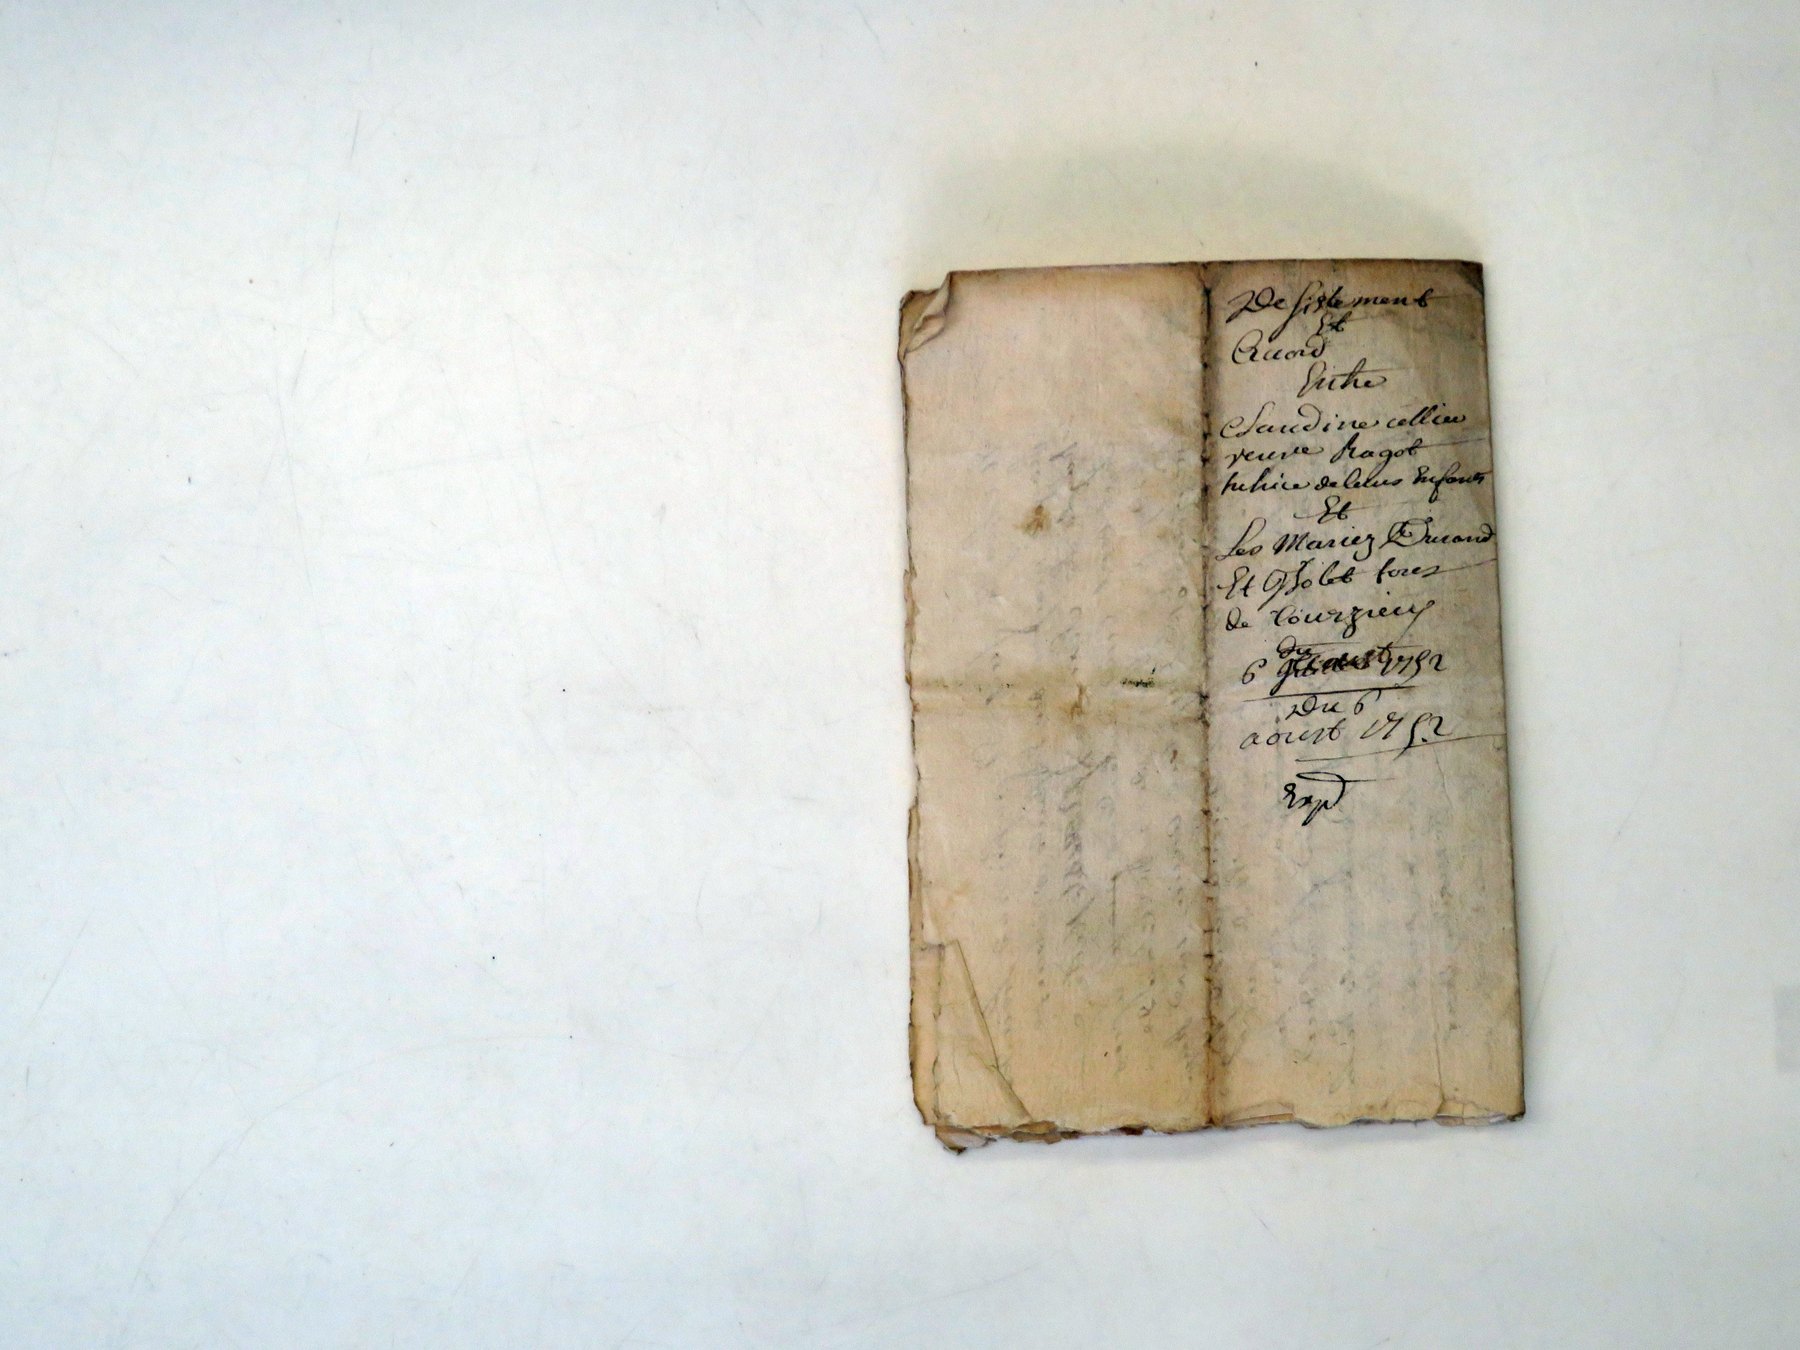 Desistement
Et
Accord
Entre
Claudine cellier
veuve Ragot
tutrice de leurs Enfants
Et
Les Mariez Durand
Et tous
de Courzieu
du
6 1752
Du 6
aoust 1752
Exp